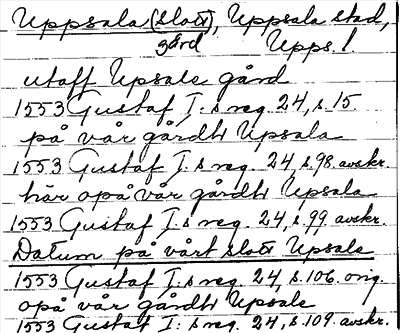 Uppsala (slott), Uppsala stad,
gård Upps. l.
utaff Upsale gård
1553 Gustaf I:s reg. 24, s. 15.
på vår gårdh Upsala
1553 Gustaf I:s reg. 24, s. 98 avskr.
här opå vår gårdh Upsala
1553 Gustaf I:s reg. 24, s. 99 avskr.
Datum på vårt slott Upsale
1553 Gustaf I:s reg. 24, s. 106. orig.
opå vår gårdh Upsale
1553 Gustaf I:s reg. 24, s. 109. avskr.